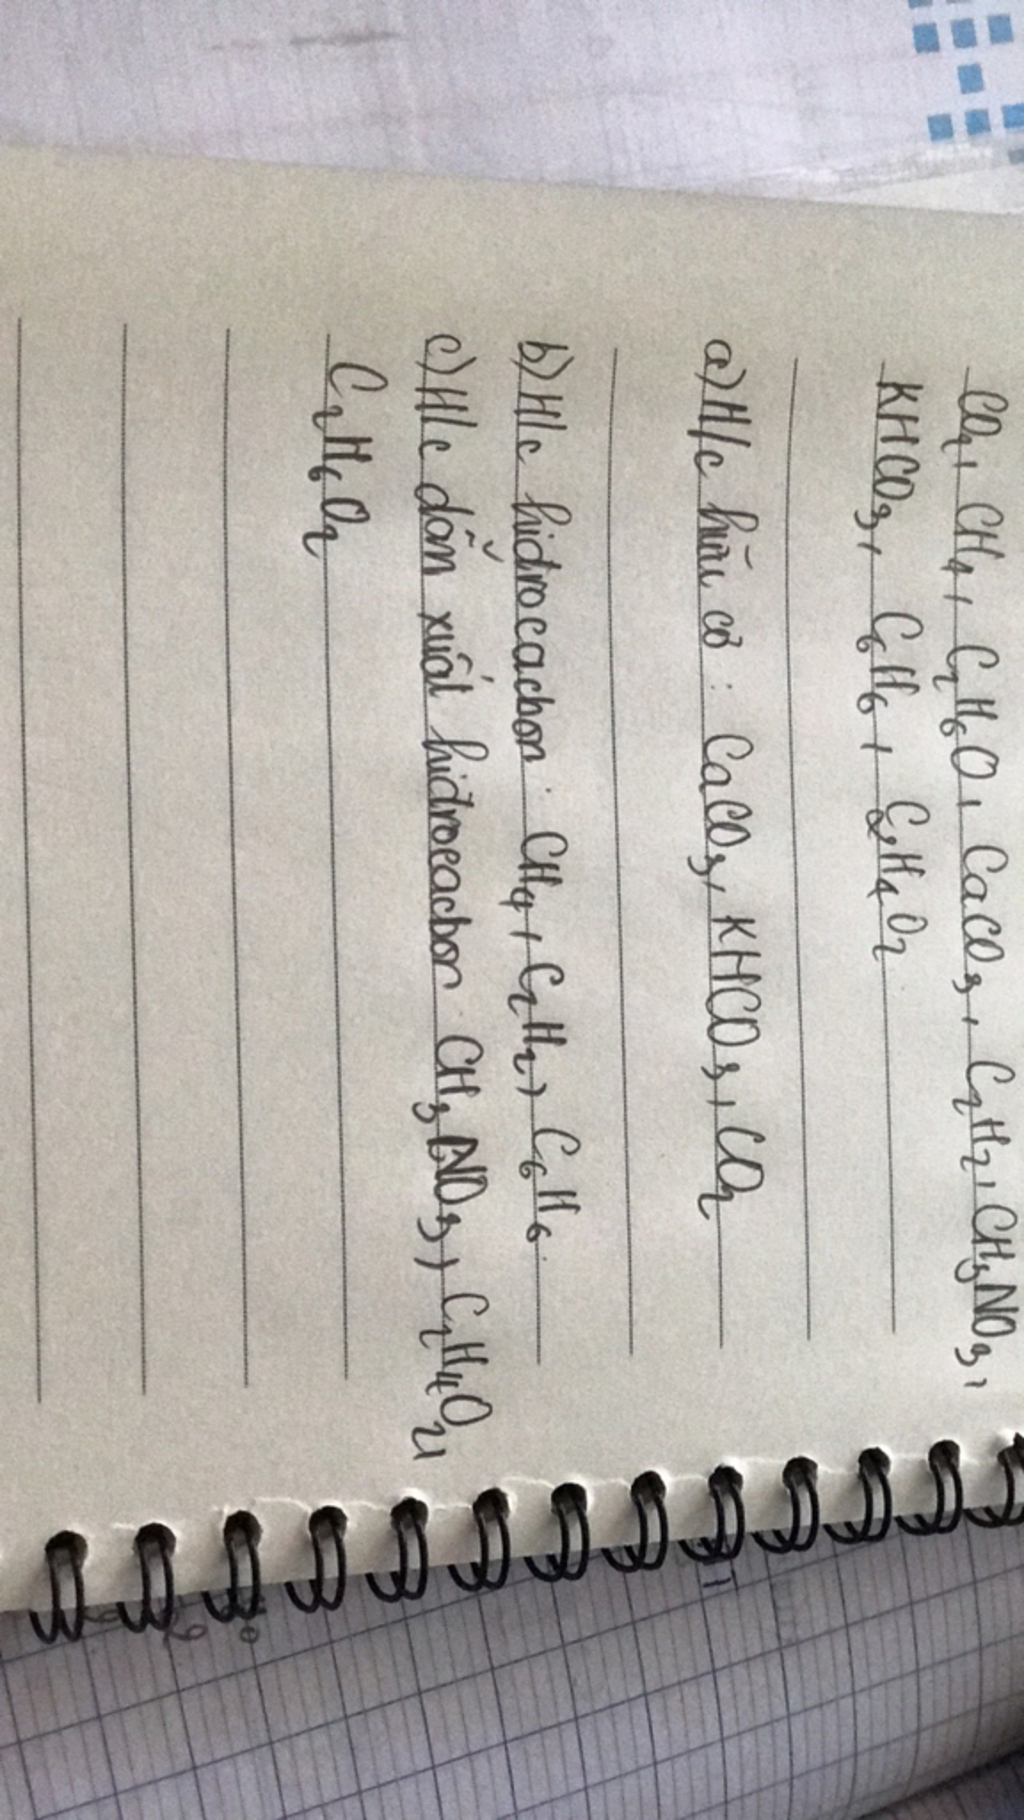 CO2, CH4, C2H6O, CaCO3, C2H2, CH3NO3,
KHCO3, C6H6, C2H4O2
a) H/c hữu cơ : CaCO3, KHCO3, CO2
b) H/c hiđrocacbon : CH4, C2H2, C6H6.
c) H/c dẫn xuất hiđrocacbon : CH3NO3, C2H4O2,
C2H6O2